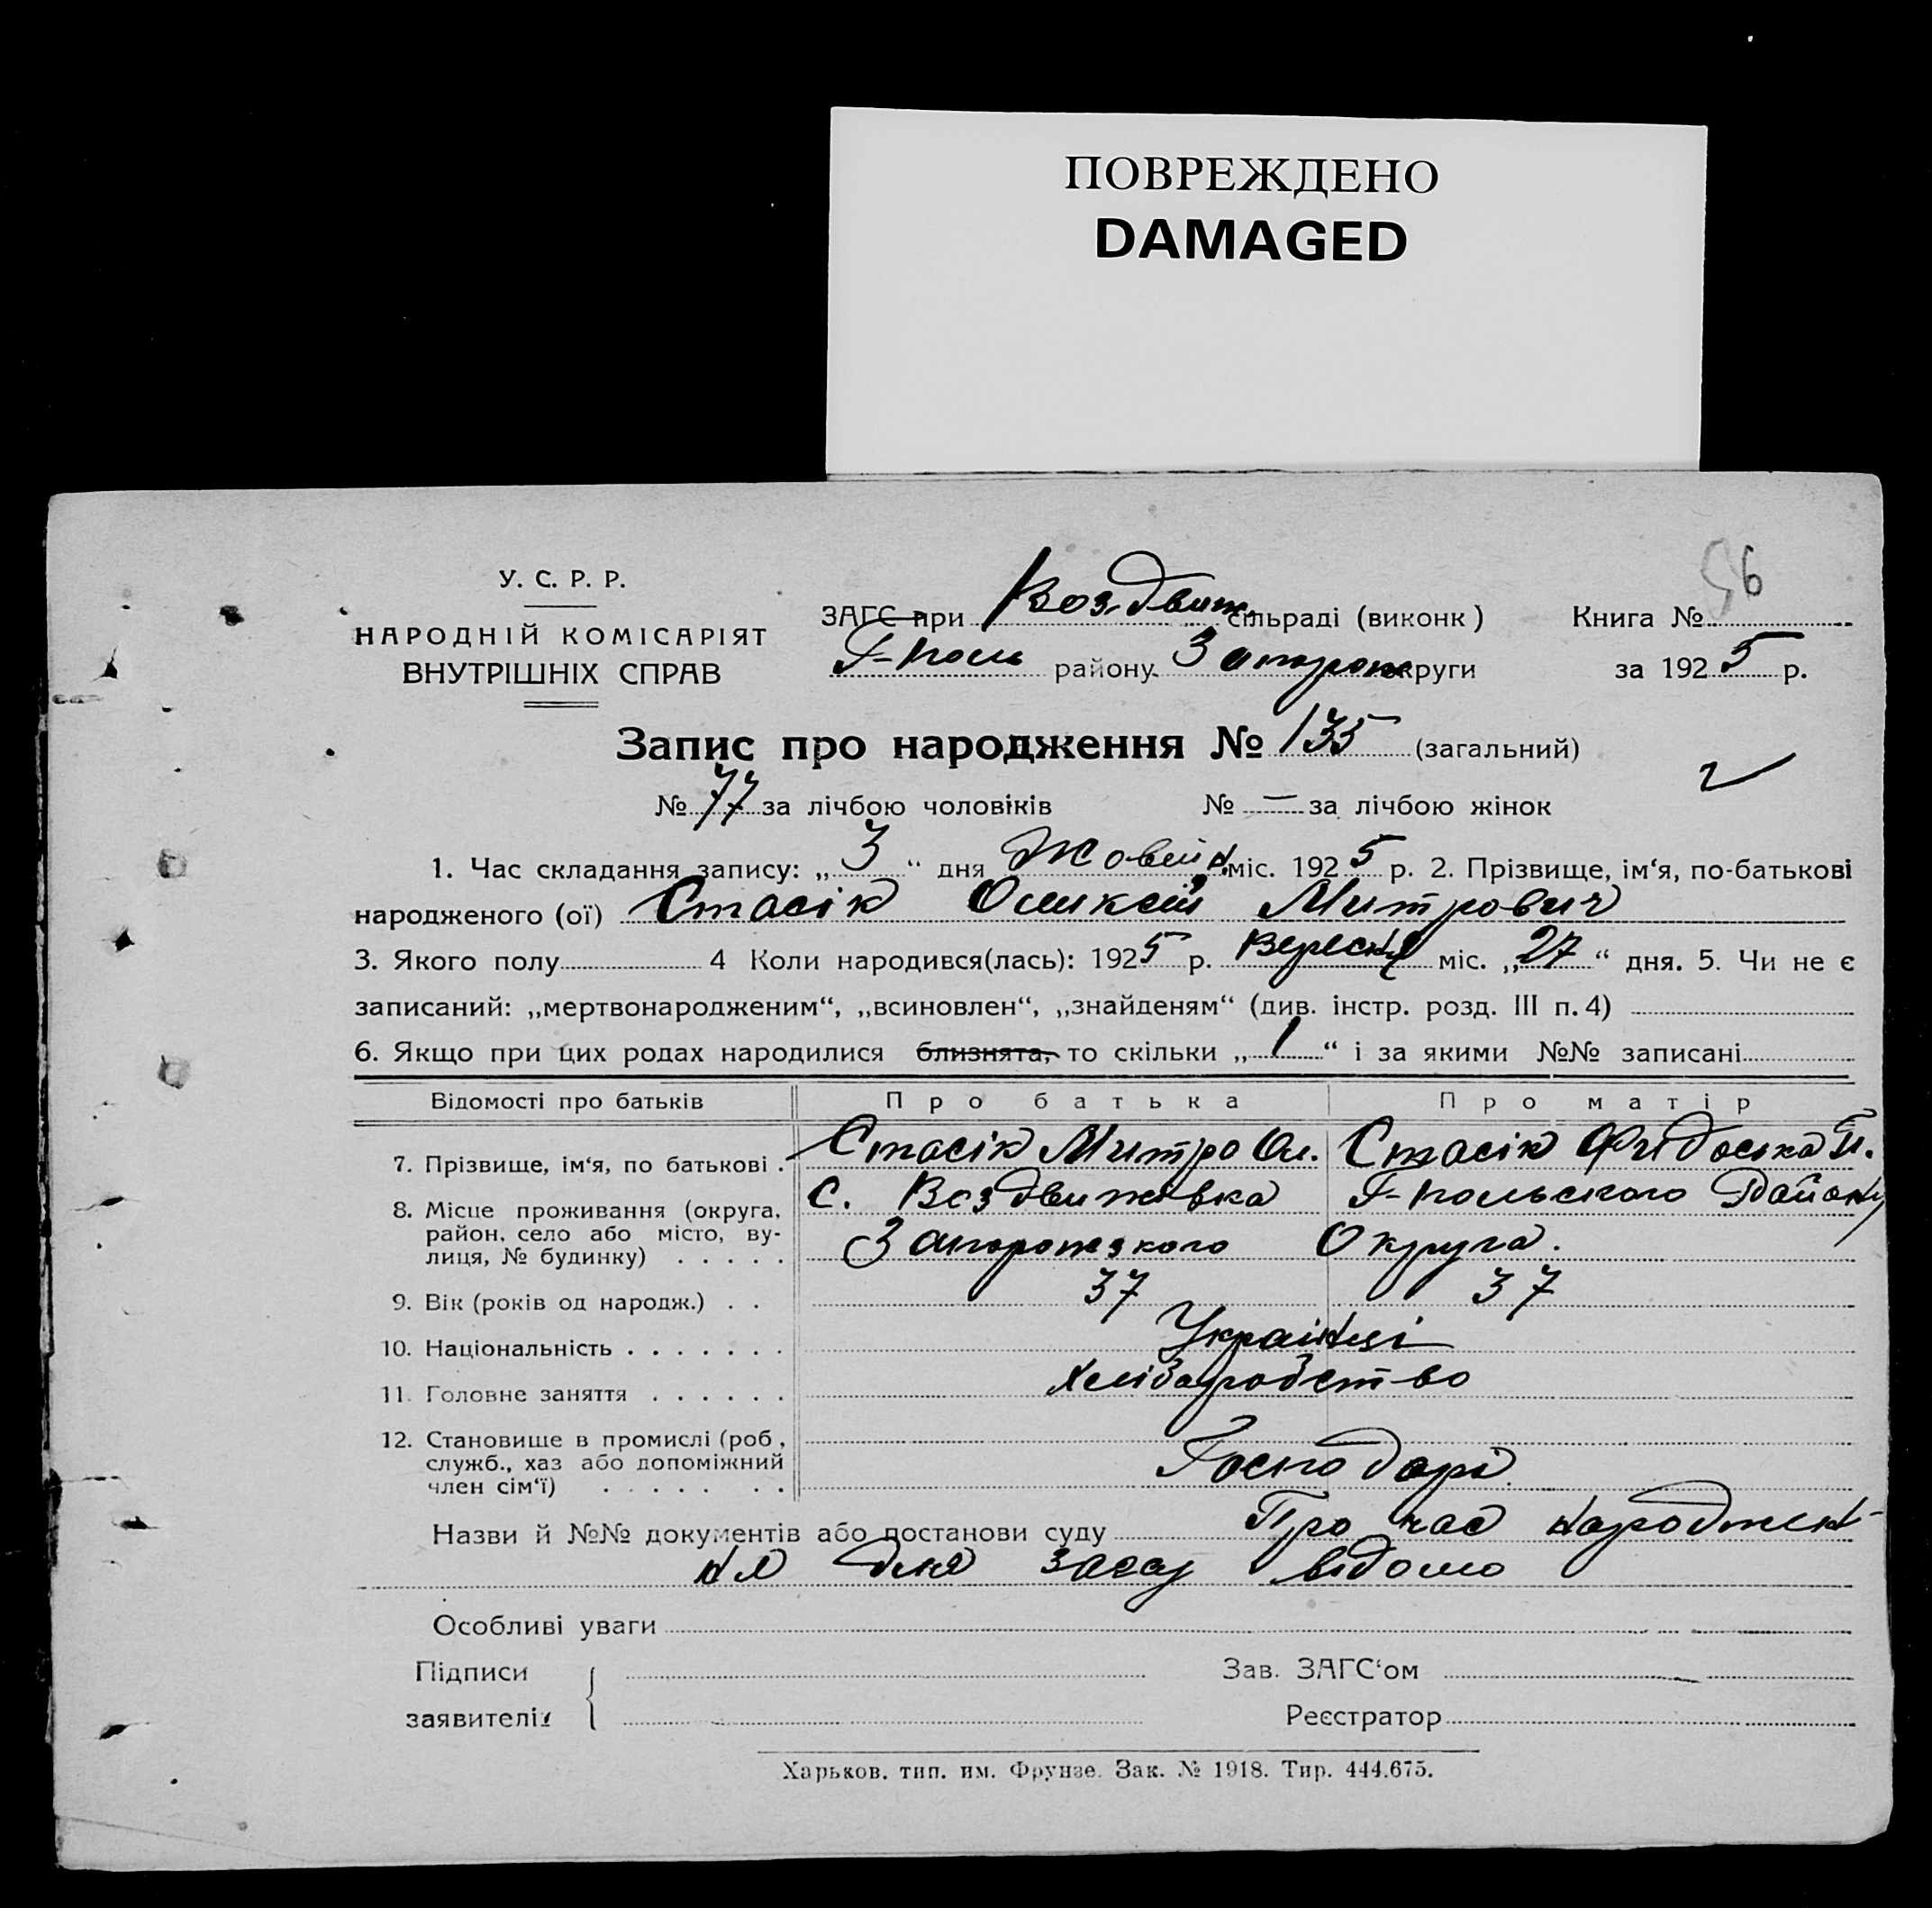 ПОВРЕЖДЕНО
DAMAGED
56
У. С. Р. Р.
НАРОДНІЙ КОМІСАРІЯТ
ВНУТРІШНІХ СПРАВ
ЗАГС при Воздвиж. сільраді (виконк) Книга №
Г-Поль району Запорож округи за 1925 р.
Запис про народження № 135 (загальний)
№ 77 за лічбою чоловіків № — за лічбою жінок
1. Час складання запису: „3“ дня Жовтн. міс. 1925 р. 2. Прізвище, ім‘я, по-батькові
народженого (ої) Стасік Оликсій Митрович
3. Якого полу 4 Коли народився(лась): 1925 р. Вересня міс. „27“ дня. 5. Чи не є
записаний: „мертвонародженим“, „всиновлен“, „знайденям“ (див. інстр. розд. III п. 4)
6. Якщо при цих родах народилися близнята, то скільки „1“ і за якими №№ записані
Відомості про батьків Про батька Про матір
7. Прізвище, ім‘я, по батькові . Стасік Митро Ол. Стасік Фидоська П.
8. Місце проживання (округа, район, село або місто, вулиця, № будинку) . . . . . с. Воздвижевка Г-Польского Району
Запорожзкого Округа.
9. Вік (років од народж.) . . 37 37
10. Національність . . . . . . . Українці
11. Головне заняття . . . . . . Хлібародство
12. Становище в промислі (роб, служб., хаз або допоміжний член сім‘ї) . . . . . . . Господарі
Назви й №№ документів або постанови суду Про час народжен-
ня для загсу відомо
Особливі уваги
Підписи Зав. ЗАГС‘ом
заявителів Реєстратор
Харьков. тип. им. Фрунзе. Зак. № 1918. Тир. 444.675.